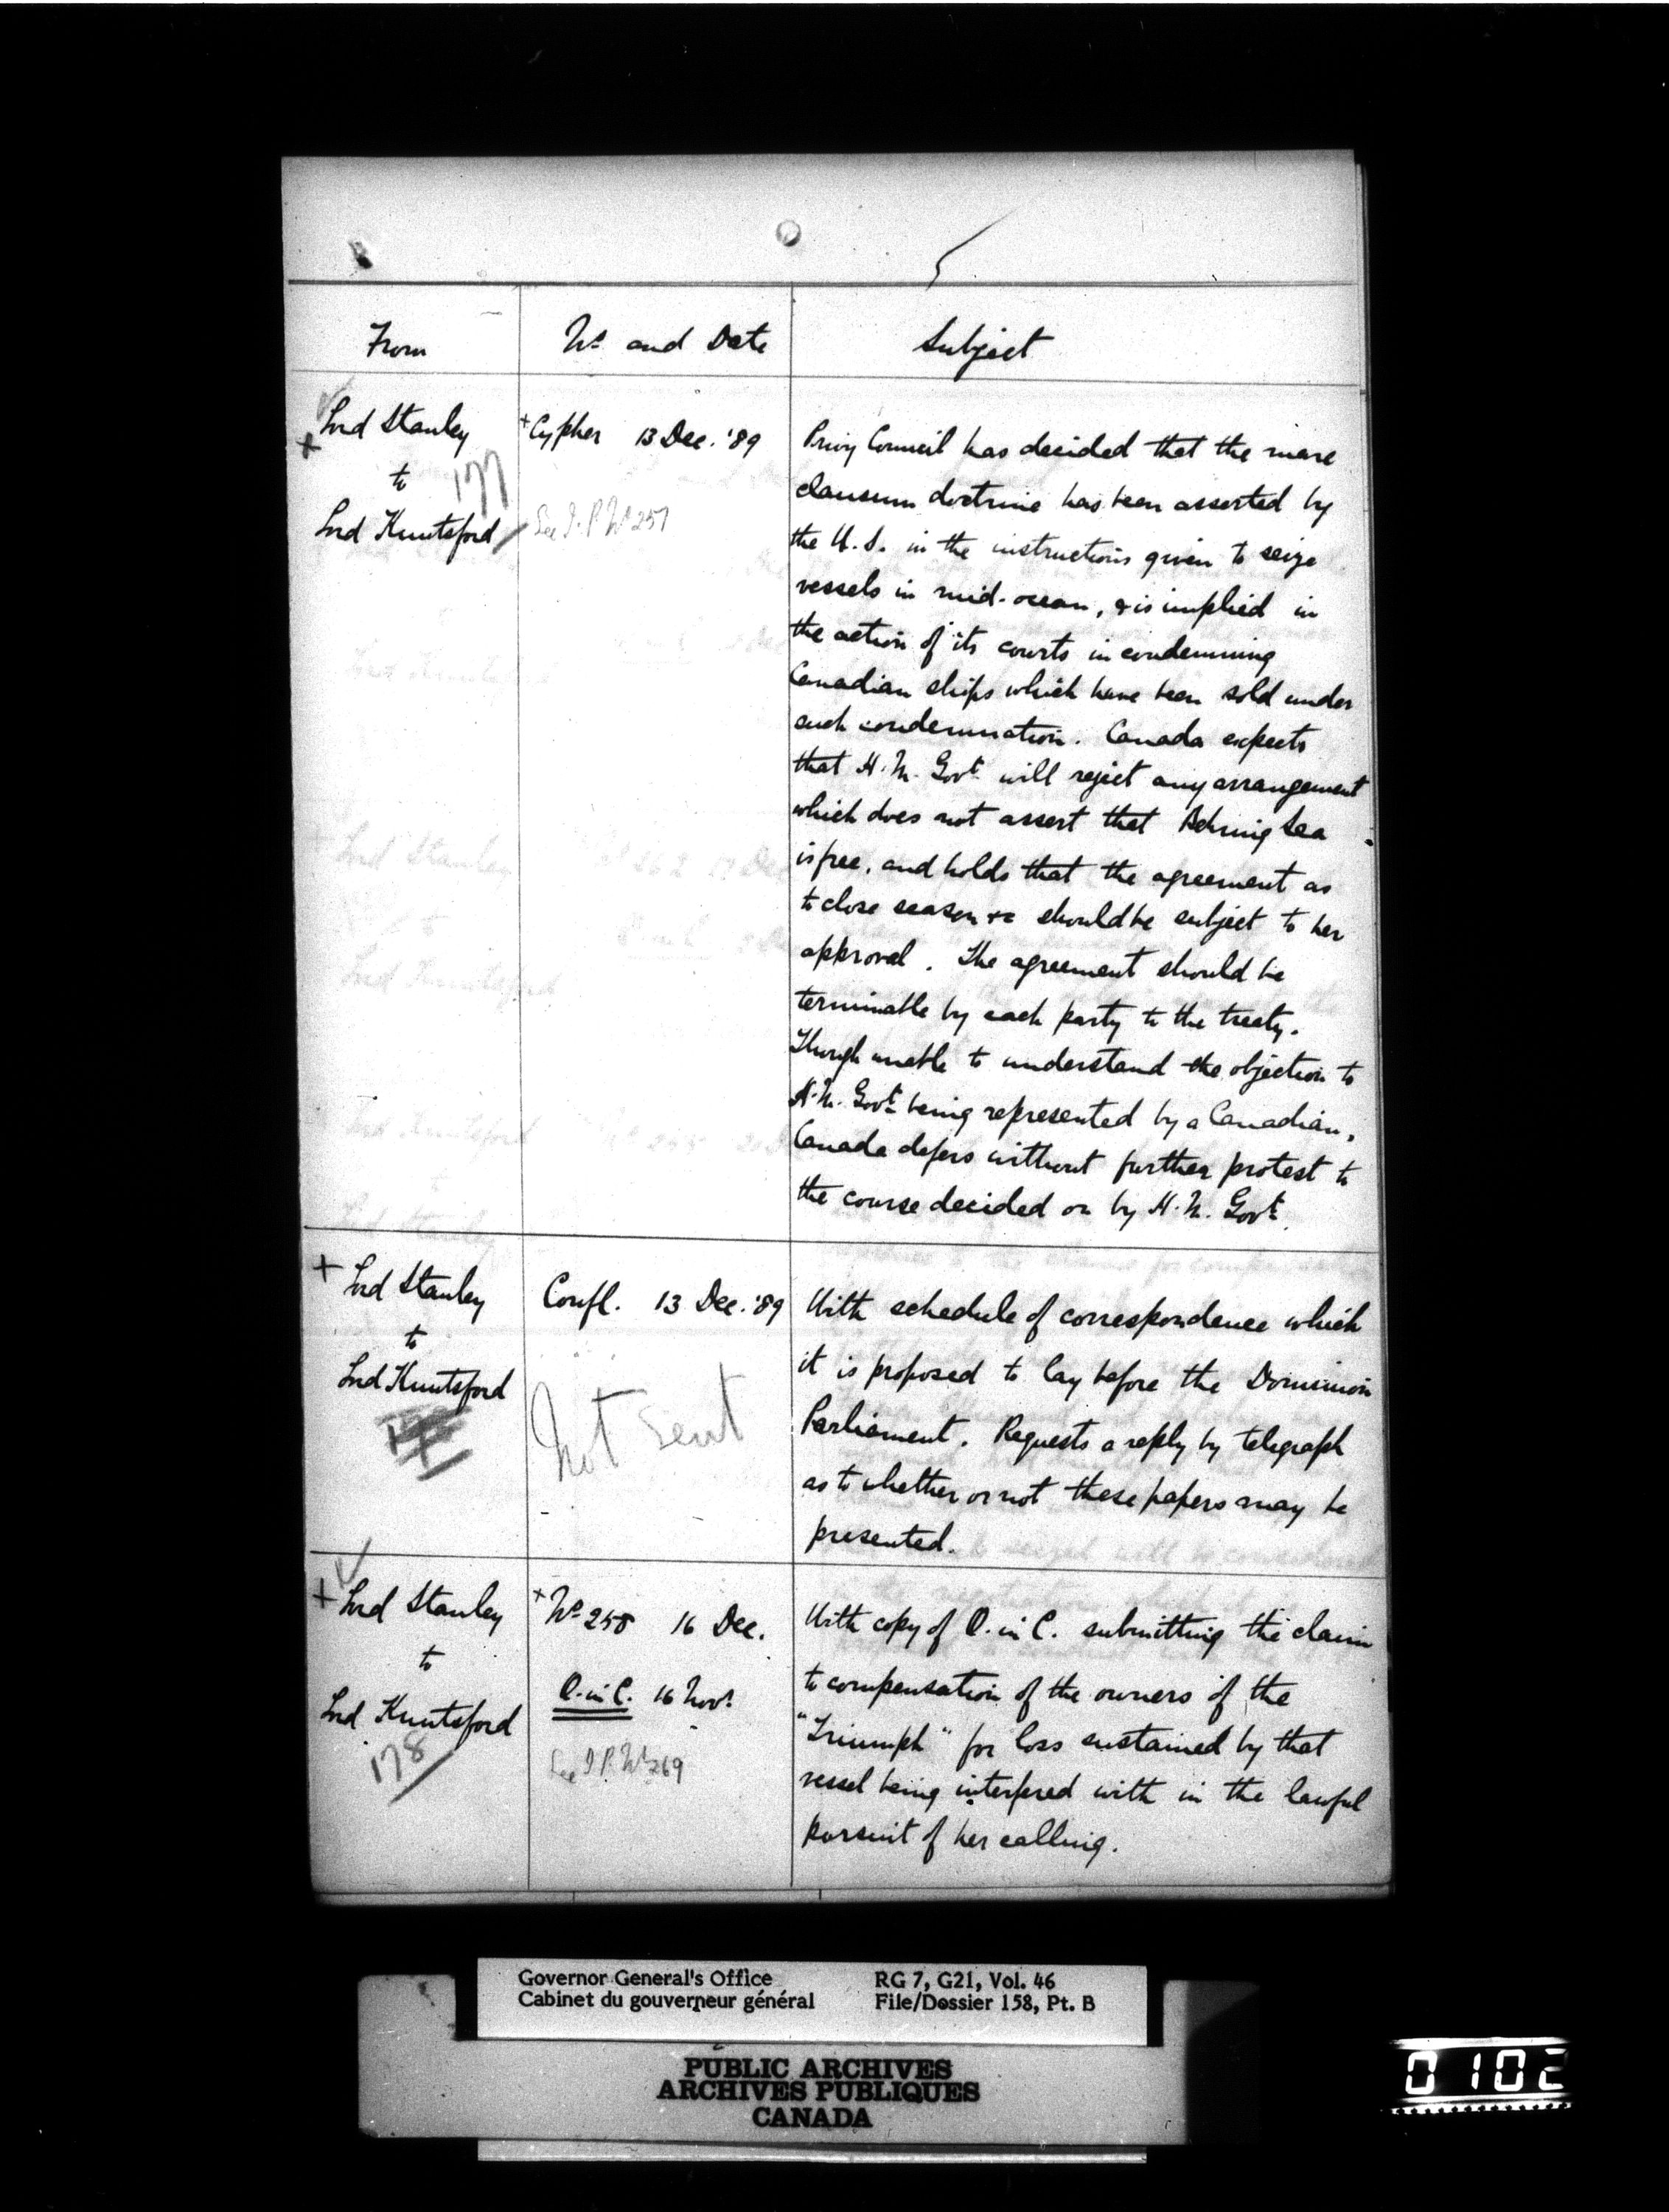 From
No and Date
Subject
Lord Stanley
to
Lord Knutsford
177
+ Cypher 13 Dec. '89
See I.P. No 257
Privy Council has decided that the mare
clausum doctrine has been asserted by
the U.S. in the instructions given to seize
vessels in mid-ocean, & is implied in
the action of its courts in condemning
Canadian ships which have been sold under
such condemnation. Canada expects
that H.M. Govt will reject any arrangement
which does not assert that Behring Sea
is free, and holds that the agreement as
to close season &c should be subject to her
approval. The agreement should be
terminable by each party to the treaty.
Though unable to understand the objection to
H.M. Govt being represented by a Canadian,
Canada defers without further protest to
the course decided on by H.M. Govt.
+ Lord Stanley
to
Lord Knutsford
Confl. 13 Dec. '89
Not sent
With schedule of correspondence which
it is proposed to lay before the Dominion
Parliament. Requests a reply by telegraph
as to whether or not these papers may be
presented.
+ Lord Stanley
to
Lord Knutsford
178
+ No 258 16 Dec.
O. in C. 16 Novr
See I.P. No 269
With copy of O. in C. submitting the claim
to compensation of the owners of the
"Triumph" for loss sustained by that
vessel being interfered with in the lawful
pursuit of her calling.
Governor General's Office RG 7, G21, Vol. 46
Cabinet du gouverneur général File/Dossier 158, Pt. B
PUBLIC ARCHIVES
ARCHIVES PUBLIQUES
CANADA
0102